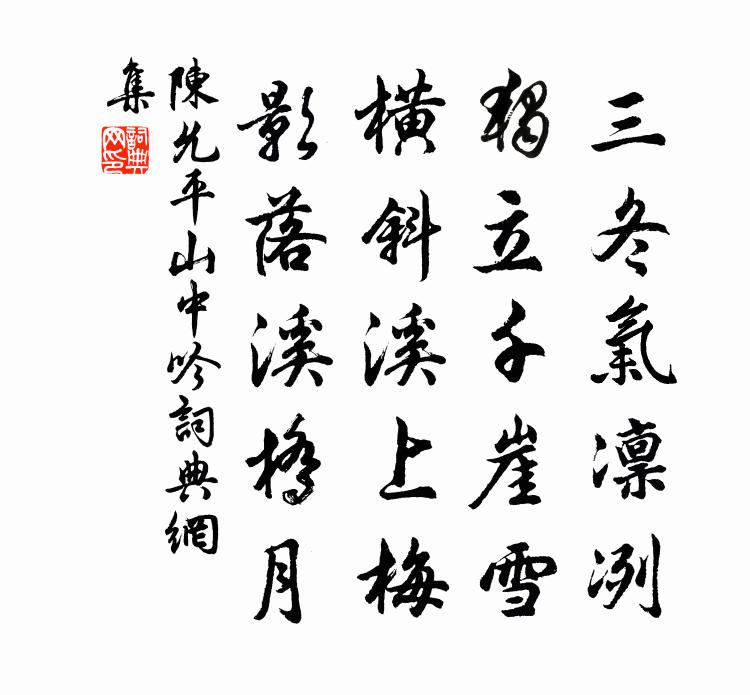 三冬氣凛冽
獨立千崖雪
橫斜溪上梅
影落溪橋月
陳允平山中吟詞典網
集
詞典
网印